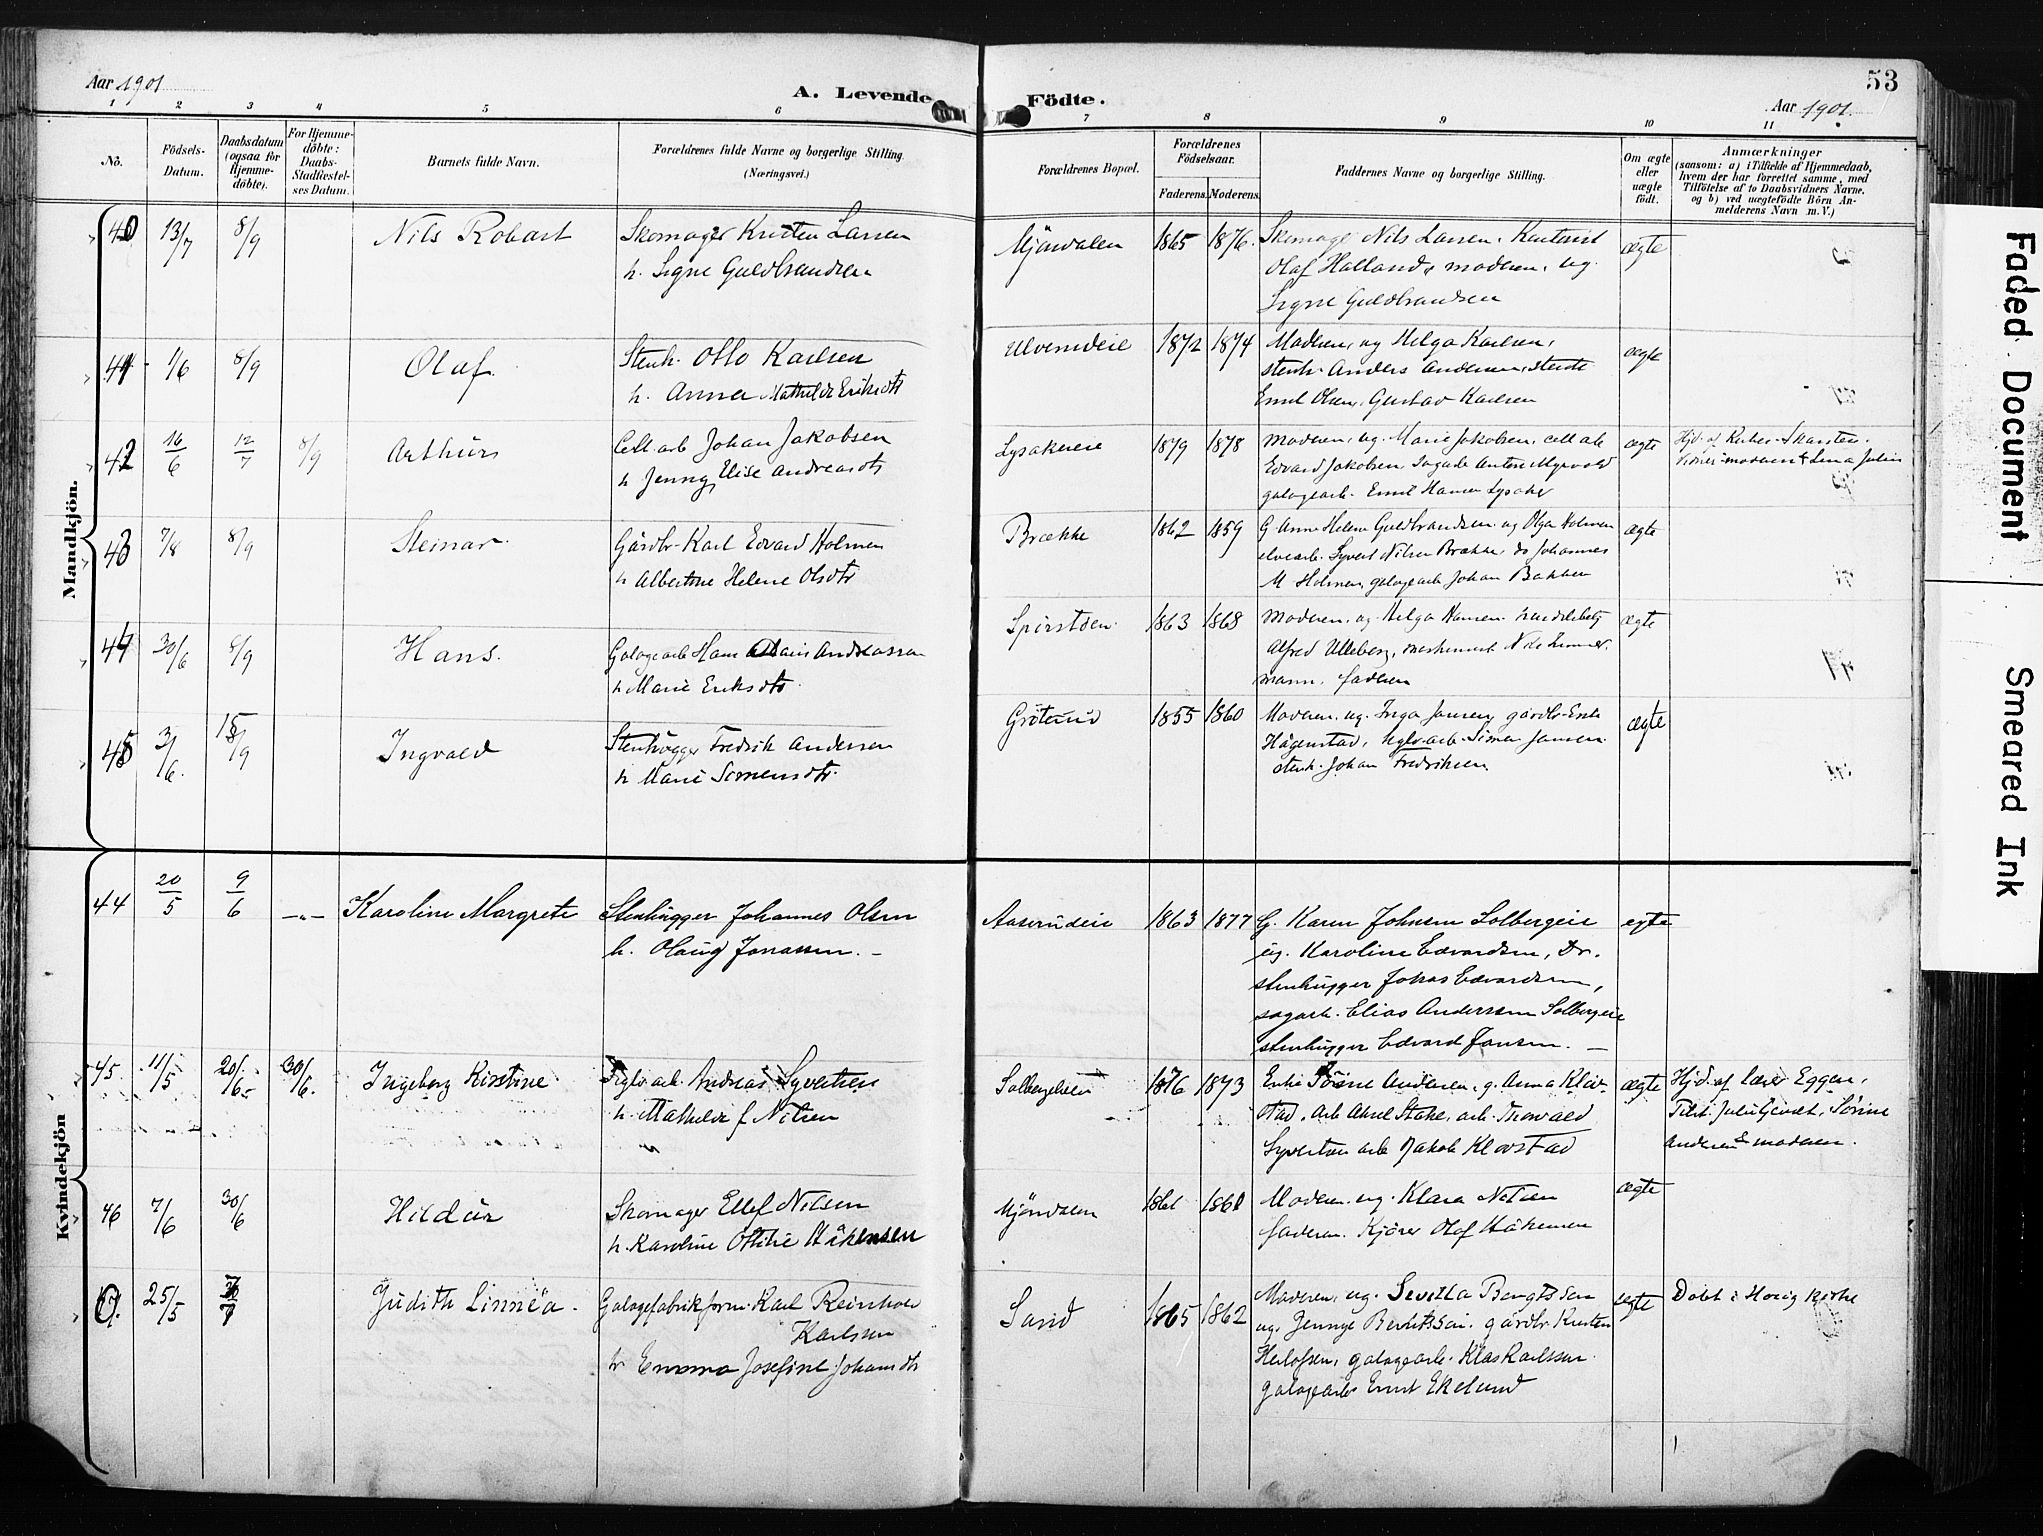 53
Aar 1901
A. Levende Födte.
Aar 1901.
1 2 3 4 5 6 7 8 9 10 11
No.
Födsels-
Datum.
Daabsdatum
(ogsaa for
Hjemme-
döbte).
For Hjemme-
döbte:
Daabs-
Stadfæstel-
ses Datum.
Barnets fulde Navn.
Forældrenes fulde Navne og borgerlige Stilling.
(Næringsvei.)
Forældrenes Bopæl.
Forældrenes
Födselsaar.
Faderens. Moderens.
Faddernes Navne og borgerlige Stilling.
Om ægte
eller
uægte
födt.
Anmærkninger
(saasom: a) i Tilfælde af Hjemmedaab,
hvem der har forrettet samme, med
Tilföielse af to Daabsvidners Navne,
og b) ved uægtefödte Börn An-
melderens Navn m. V.)
Mandkjön.
40 13/7 8/9 Nils Robart Skomager Kristen Larsen
h. Signe Guldbrandsen
Mjöndalen 1865 1876. Skomager Nils Larsen, Kontorist
Olaf Halland, moderen, ug.
Signe Guldbrandsen
ægte
41 1/6 8/9 Olaf. Stenh. Otto Karlsen
h. Anna Mathilde Eriksdtr
1872 1874 Moderen, ug Helga Karlsen,
stenh. Anders Andersen, stenh
Emil Olsen, Gustav Karlsen
ægte
42 16/6 12/7 8/9 Arthur Cell. arb Johan Jakobsen
h Jenny Elise Andreasdtr
Lysakereie 1879 1878 Moderen, ug. Marie Jakobsen, cell arb
Edvard Jakobsen
galogearb. Emil Hansen Lysaker
ægte
43 7/8 8/9 Steinar Gårdbr. Karl Edvard Holmen
h Albertine Helene Olsdtr
Brække 1862 1859 G. Anne Helene Guldbrandsen ug Olga Holmen
elvearb. Syvert Nilsen Brække, do Johannes
M Holmen, galogearb Johan Bakken
ægte
44 30/6 8/9 Hans. Galogearb Hans Andreassen
h Marie Eriksdtr.
1863 1868 Moderen, ug. Helga Hansen
Alfred Ulleberg, Nils Zimmer-
mann. faderen
ægte
45 3/6. 15/9 Ingvald Stenhugger Fredrik Andersen
h Marie Simensdtr.
1855 1860 Moderen, ug. Inga Jansen, gårdbr Enk
Hågenstad, Simen Jansen
stenh. Johan Fredriksen
ægte
Kvindekjön
44 20/5 9/6 —„— Karoline Margrete Stenhugger Johannes Olsen
h. Olaug Jonassen. -
Aaserudeie 1863 1877 G. Karen Johnsen Solbergeie
ug. Karoline Edvardsen, Dr.
stenhugger Johas Edvardsen,
sagarb. Elias Anderssen Solbergeie
stenhugger Edvard Jansen. —
egte
45 11/5 20/6 30/6. Ingeborg Kirstine Teglv arb. Andreas Syvertsen
h. Mathilde f Nilsen
Solbergelven 1876 1873 Enke Sörine Andersen, g. Anna Klov-
stad, arb Aksel Stake, arb. Torvald
Syvertsen arb Jakob Klovstad
ægte Hjd. af lærer Eggen,
Sörine
Andersen & moderen.
46 7/6 30/6 Hildur Skomager Ellef Nilsen
h. Karoline Otilie Håkensen
Mjöndalen 1861 1861 Moderen. ug. Klara Nilsen
faderen. Kjörer Olaf Håkensen
ægte
25/5 Judith Linnéa. Galogefabrikform. Karl Reinhold
Karlsson
h Emma Josefine Johansdtr
Sand 1865 1862 Moderen, ug. Bengtsson
ug. Jennye Berntsson. gårdbr Kristen
Herlofsen, galogearb. Klas Karlsson
galogearb Ernst Ekelund
egte Döbt i Houg kirke
Faded Document
Smeared Ink